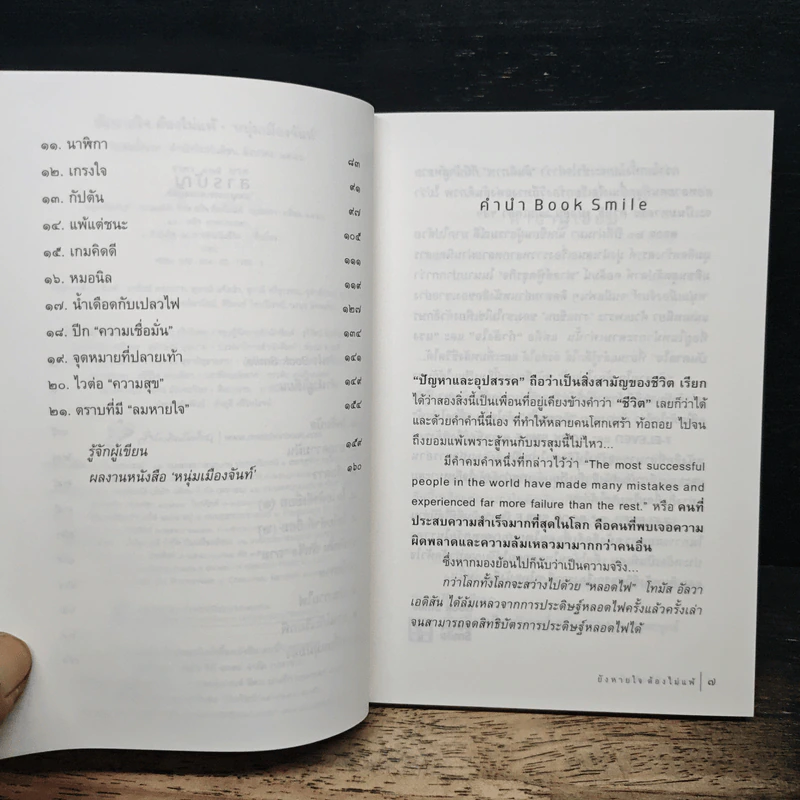 ๑๑. นาฬิกา ๘๓
๑๒. เกรงใจ ๙๑
๑๓. กัปตัน ๙๗
๑๔. แพ้แต่ชนะ ๑๐๕
๑๕. เกมคิดดี ๑๑๑
๑๖. หมอนิล ๑๑๙
๑๗. น้ำเดือดกับเปลวไฟ ๑๒๗
๑๘. ปีก "ความเชื่อมั่น" ๑๓๔
๑๙. จุดหมายที่ปลายเท้า ๑๔๑
๒๐. ไวต่อ "ความสุข" ๑๔๙
๒๑. ตราบที่มี "ลมหายใจ" ๑๕๔
รู้จักผู้เขียน ๑๕๙
ผลงานหนังสือ 'หนุ่มเมืองจันท์' ๑๖๐
คำนำ Book Smile
"ปัญหาและอุปสรรค" ถือว่าเป็นสิ่งสามัญของชีวิต เรียก
ได้ว่าสองสิ่งนี้เป็นเพื่อนที่อยู่เคียงข้างคำว่า "ชีวิต" เลยก็ว่าได้
และด้วยคำคำนี้นี่เอง ที่ทำให้หลายคนโศกเศร้า ท้อถอย ไปจน
ถึงยอมแพ้เพราะสู้ทนกับมรสุมนี้ไม่ไหว...
มีคำคมคำหนึ่งที่กล่าวไว้ว่า "The most successful
people in the world have made many mistakes and
experienced far more failure than the rest." หรือ คนที่
ประสบความสำเร็จมากที่สุดในโลก คือคนที่พบเจอความ
ผิดพลาดและความล้มเหลวมามากกว่าคนอื่น
ซึ่งหากมองย้อนไปก็นับว่าเป็นความจริง...
กว่าโลกทั้งโลกจะสว่างไปด้วย "หลอดไฟ" โทมัส อัลวา
เอดิสัน ได้ล้มเหลวจากการประดิษฐ์หลอดไฟครั้งแล้วครั้งเล่า
จนสามารถจดสิทธิบัตรการประดิษฐ์หลอดไฟได้
ยังหายใจ ต้องไม่แพ้ ๗